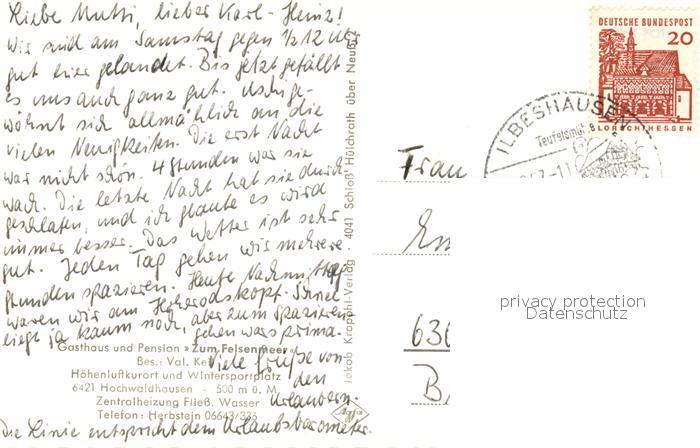 Liebe Mutti, lieber Karl-Heinz!
Wir sind am Samstag gegen 1/2 12 Uhr
gut hier gelandet. Bis jetzt gefällt
es uns auch ganz gut. Uschi ge-
wöhnt sich allmählich an die
vielen Neuigkeiten. Die erst Nacht
war nicht schön. 4 Stunden war sie
wach. Die letzte Nacht hat sie durch
geschlafen, und ich glaube es wird
immer besser. Das Wetter ist sehr
gut. Jeden Tag gehen wir mehrere
Stunden spazieren. Heute Nachmittag
waren wir am Hoherodskopf. Schnee
liegt ja kaum noch, aber zum Spazieren
gehen wars prima.
Viele Grüße von
den
Urlaubern.
Die Linie entspricht dem Urlaubsbarometer.
Gasthaus und Pension »Zum Felsenmeer«
Bes.: Val.
Höhenluftkurort und Wintersportplatz
6421 Hochwaldhausen - 500 m ü. M.
Zentralheizung Fließ. Wasser
Telefon: Herbstein 06643/336
Jakob Krapohl-Verlag · 4041 Schloß Hülchrath über Neuß
Agfa
DEUTSCHE BUNDESPOST
20
LORSCH/HESSEN
ILBESHAUSEN
Frau
630
privacy protection
Datenschutz